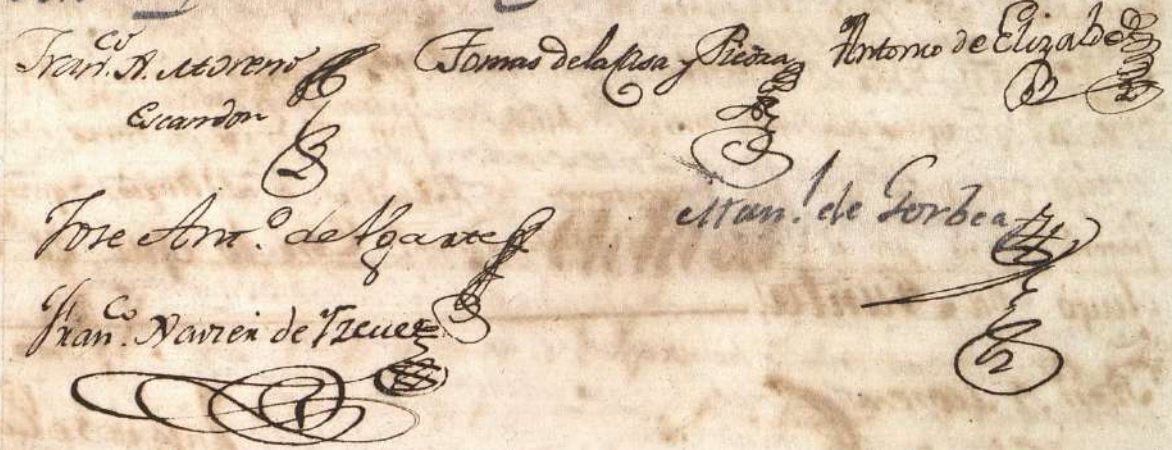 Fran.co A. Moreno
Escandon
Tomas de la Casa y Piedra
Antonio de Elizalde
Jose Ant.o de Ugarte
Man.l de Gorbea
Fran.co Xavier de Yzcue